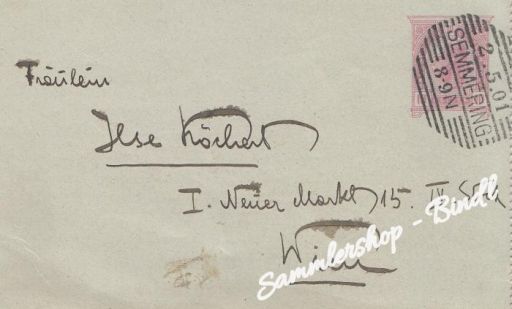 2. 5. 01
SEMMERING
8-9N
Fräulein
Ilse Köchert
I. Neuer Markt 15. IV. Stock
Wien
Sammlershop - Bindl